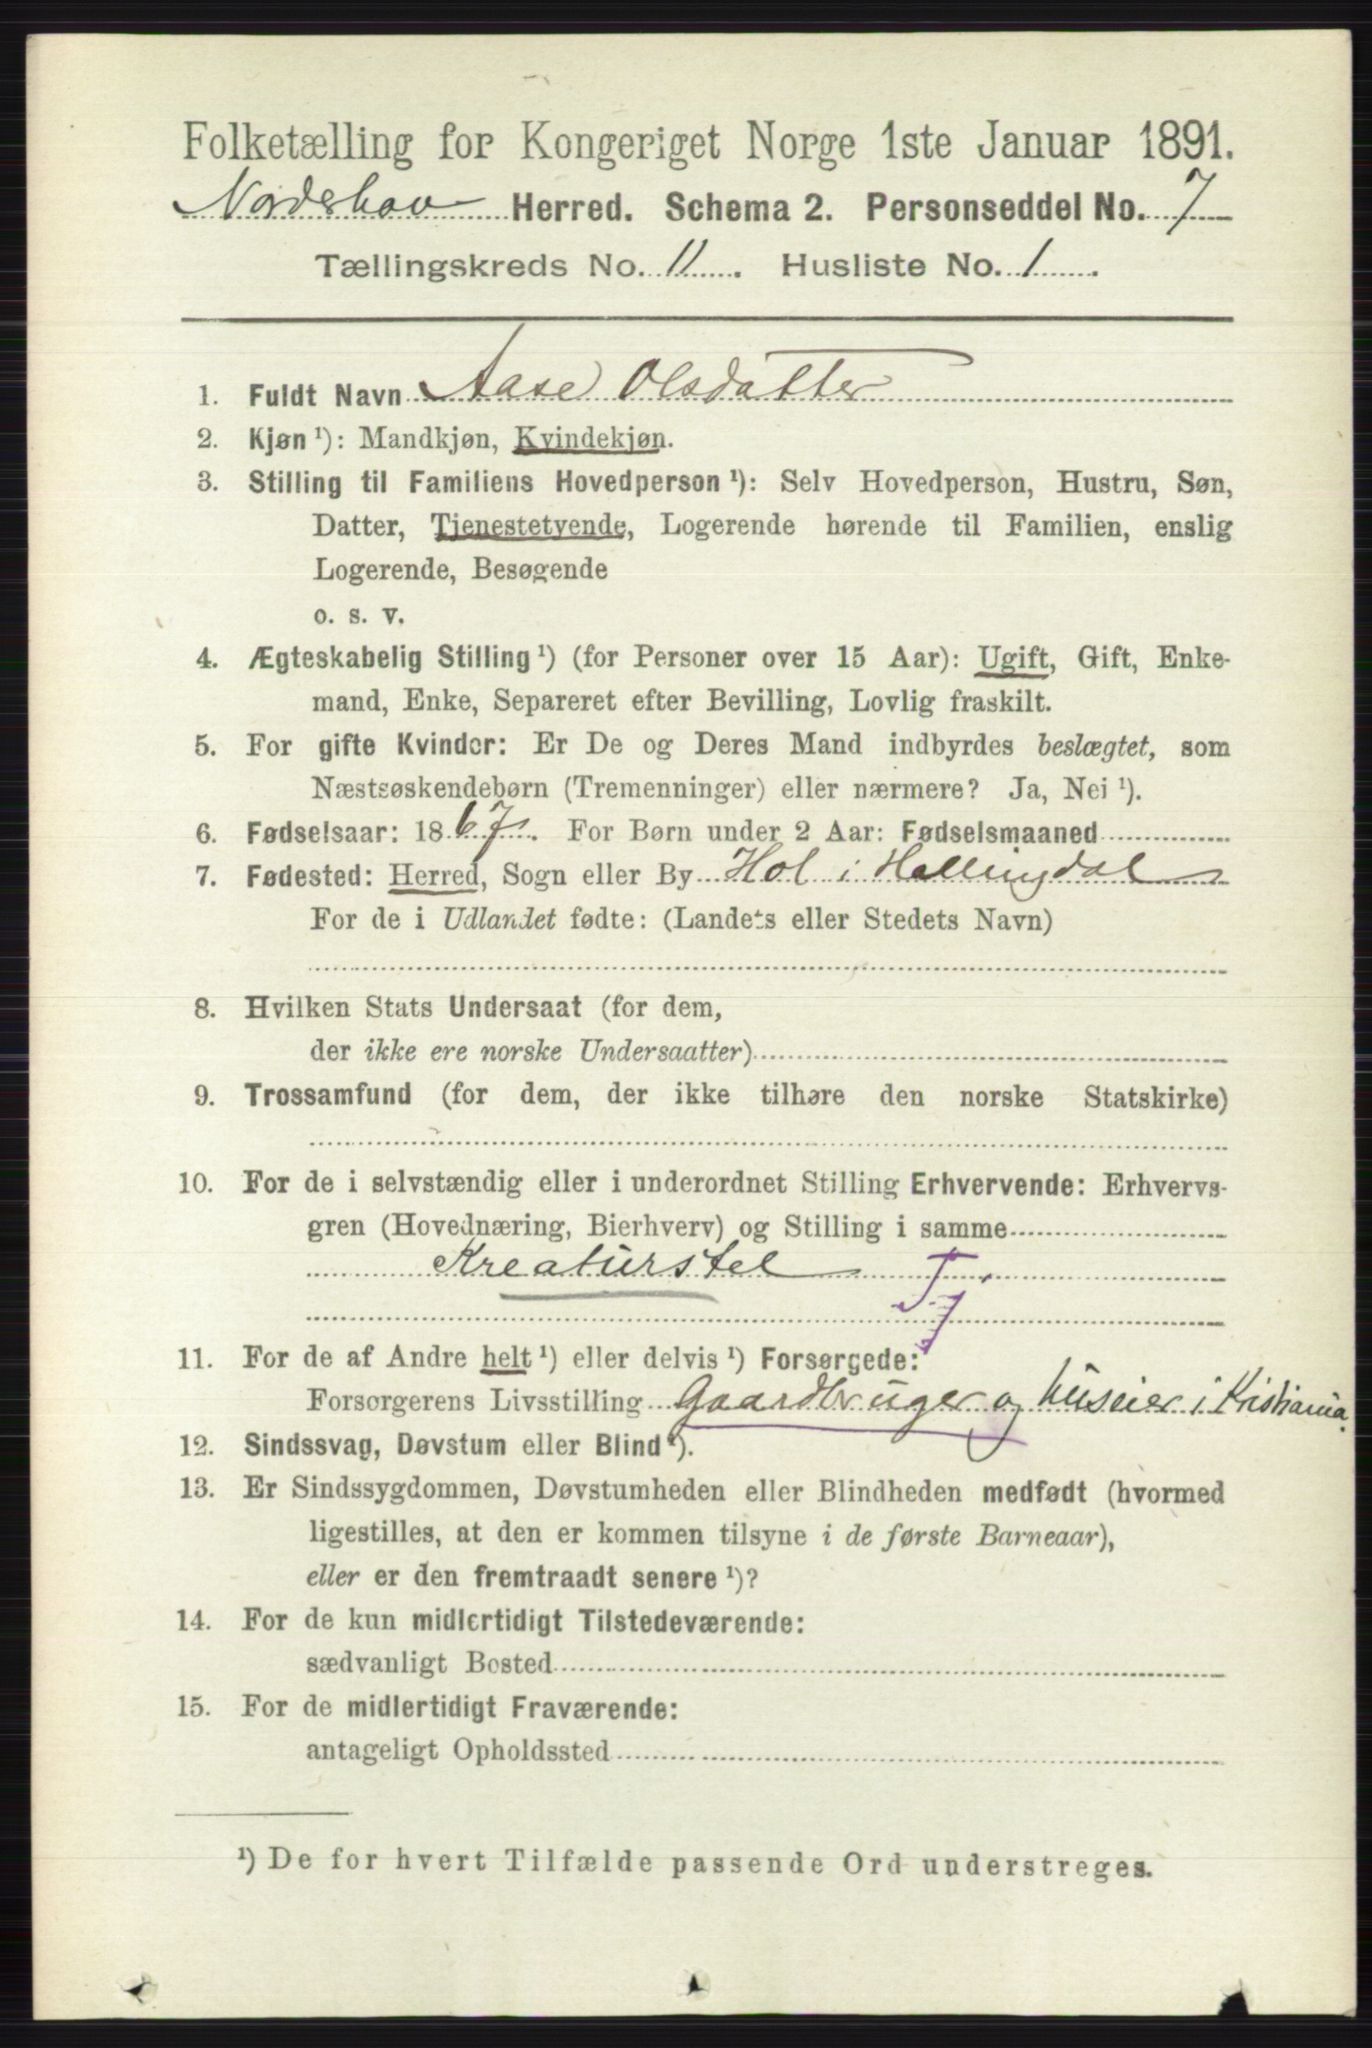 Folketælling for Kongeriget Norge 1ste Januar 1891.
Norderhov Herred. Schema 2. Personseddel No. 7
Tællingskreds No. 11. Husliste No. 1.
1. Fuldt Navn Aase Olsdatter
2. Kjøn ¹): Mandkjøn, Kvindekjøn.
3. Stilling til Familiens Hovedperson ¹): Selv Hovedperson, Hustru, Søn,
Datter, Tjenestetyende, Logerende hørende til Familien, enslig
Logerende, Besøgende
o. s. v.
4. Ægteskabelig Stilling ¹) (for Personer over 15 Aar): Ugift, Gift, Enke-
mand, Enke, Separeret efter Bevilling, Lovlig fraskilt.
5. For gifte Kvinder: Er De og Deres Mand indbyrdes beslægtet, som
Næstsøskendebørn (Tremenninger) eller nærmere? Ja, Nei ¹).
6. Fødselsaar: 1867. For Børn under 2 Aar: Fødselsmaaned
7. Fødested: Herred, Sogn eller By Hol i Hallingdal
For de i Udlandet fødte: (Landets eller Stedets Navn)
8. Hvilken Stats Undersaat (for dem,
der ikke ere norske Undersaatter)
9. Trossamfund (for dem, der ikke tilhøre den norske Statskirke)
10. For de i selvstændig eller i underordnet Stilling Erhvervende: Erhvervs-
gren (Hovednæring, Bierhverv) og Stilling i samme
Kreaturstel Tj.
11. For de af Andre helt ¹) eller delvis ¹) Forsørgede:
Forsørgerens Livsstilling Gaardbruger og huseier i Kristiania.
12. Sindssvag, Døvstum eller Blind ¹).
13. Er Sindssygdommen, Døvstumheden eller Blindheden medfødt (hvormed
ligestilles, at den er kommen tilsyne i de første Barneaar),
eller er den fremtraadt senere ¹)?
14. For de kun midlertidigt Tilstedeværende:
sædvanligt Bosted
15. For de midlertidigt Fraværende:
antageligt Opholdssted
¹) De for hvert Tilfælde passende Ord understreges.